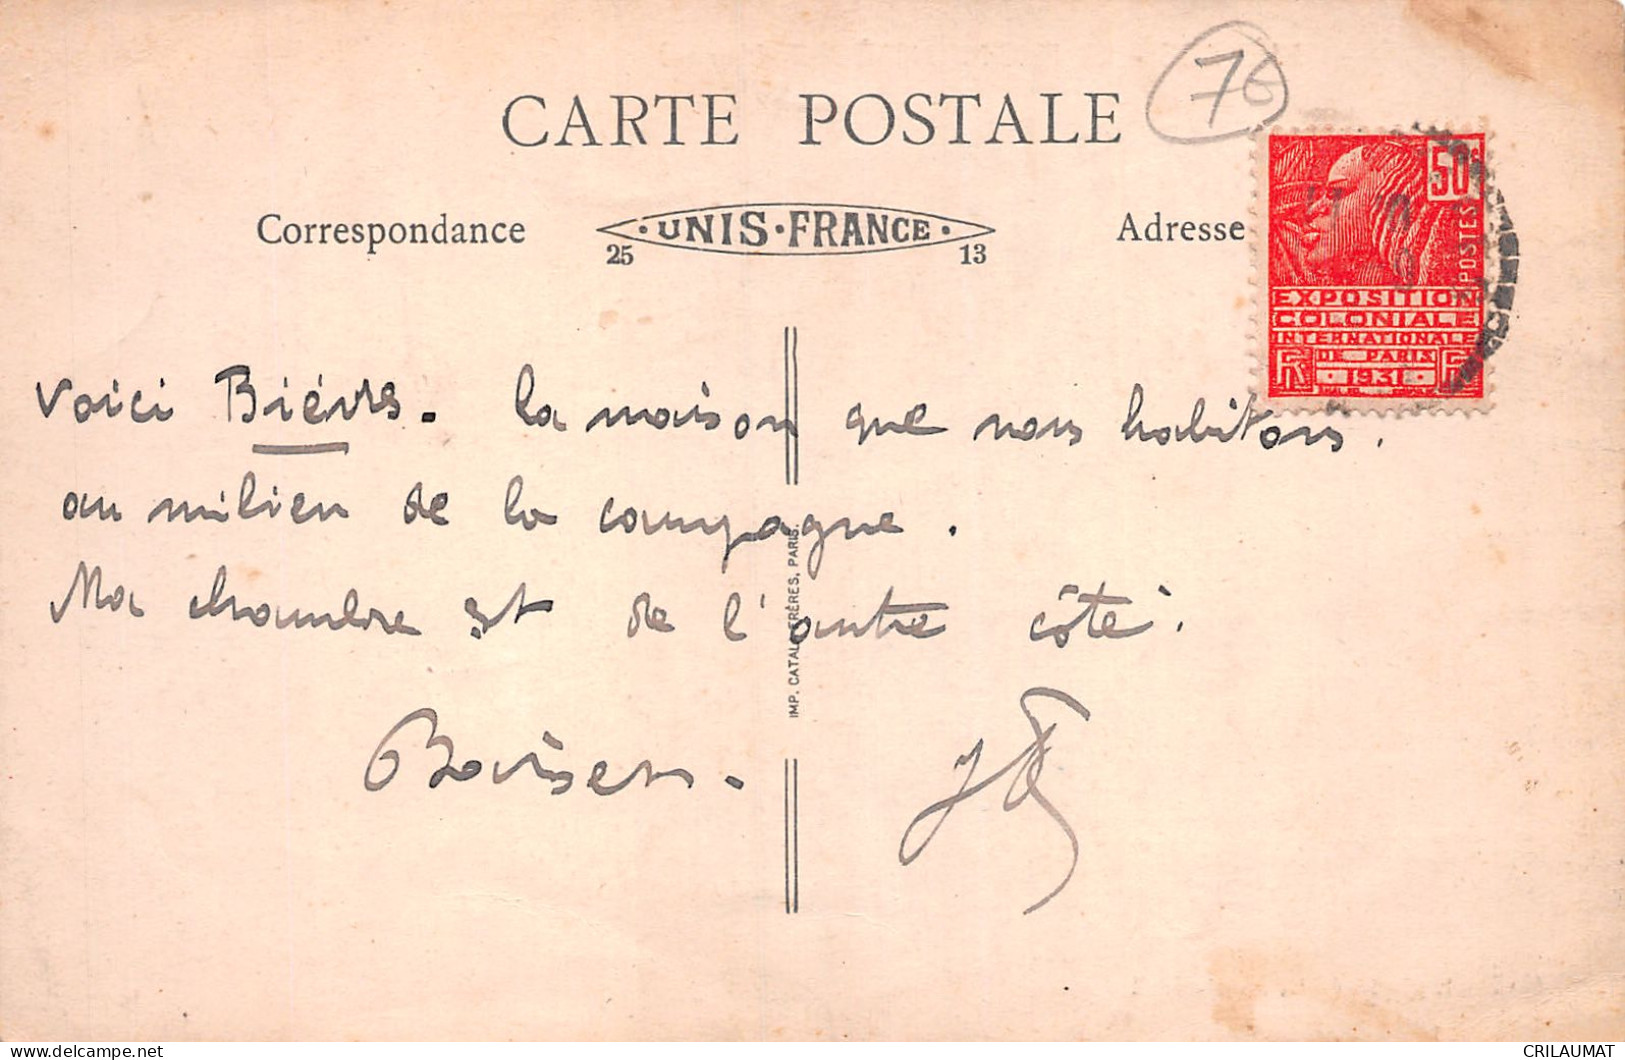 76
CARTE POSTALE
Correspondance
UNIS·FRANCE
25 13
Adresse
50c
POSTES
EXPOSITION
COLONIALE
INTERNATIONALE
DE PARIS
RF 1931 RF
Voici Bièvres. la maison que nous habitons.
au milieu de la campagne.
Ma chambre est de l'autre côté.
Baisers.
IMP. CATALA FRÈRES, PARIS.
CRILAUMAT